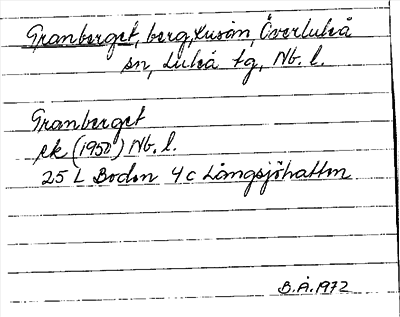 Granberget, berg, Avan, Överluleå
sn, Luleå tg, Nb. l.
Granberget
ek (1950) Nb. l.
25 L Boden 4c Långsjöhatten
B.Å. 1972